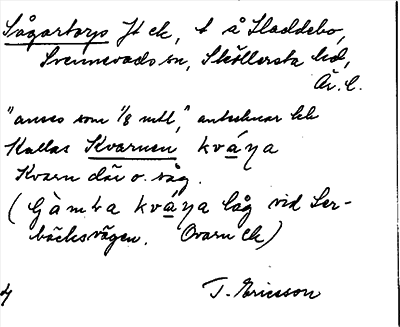 Sågartorp Jt ek, t å Sladdebo,
Svennevads sn, Sköllersta hd,
Ör. l.
"anses som 1/8 mtl," antecknar hk
Kallas Kvarnen kváṇa
Kvarn där o. såg.
(Gàmḷa kváṇa låg vid Ser-
bäcksvägen. Ovarn Ek)
T. Ericsson